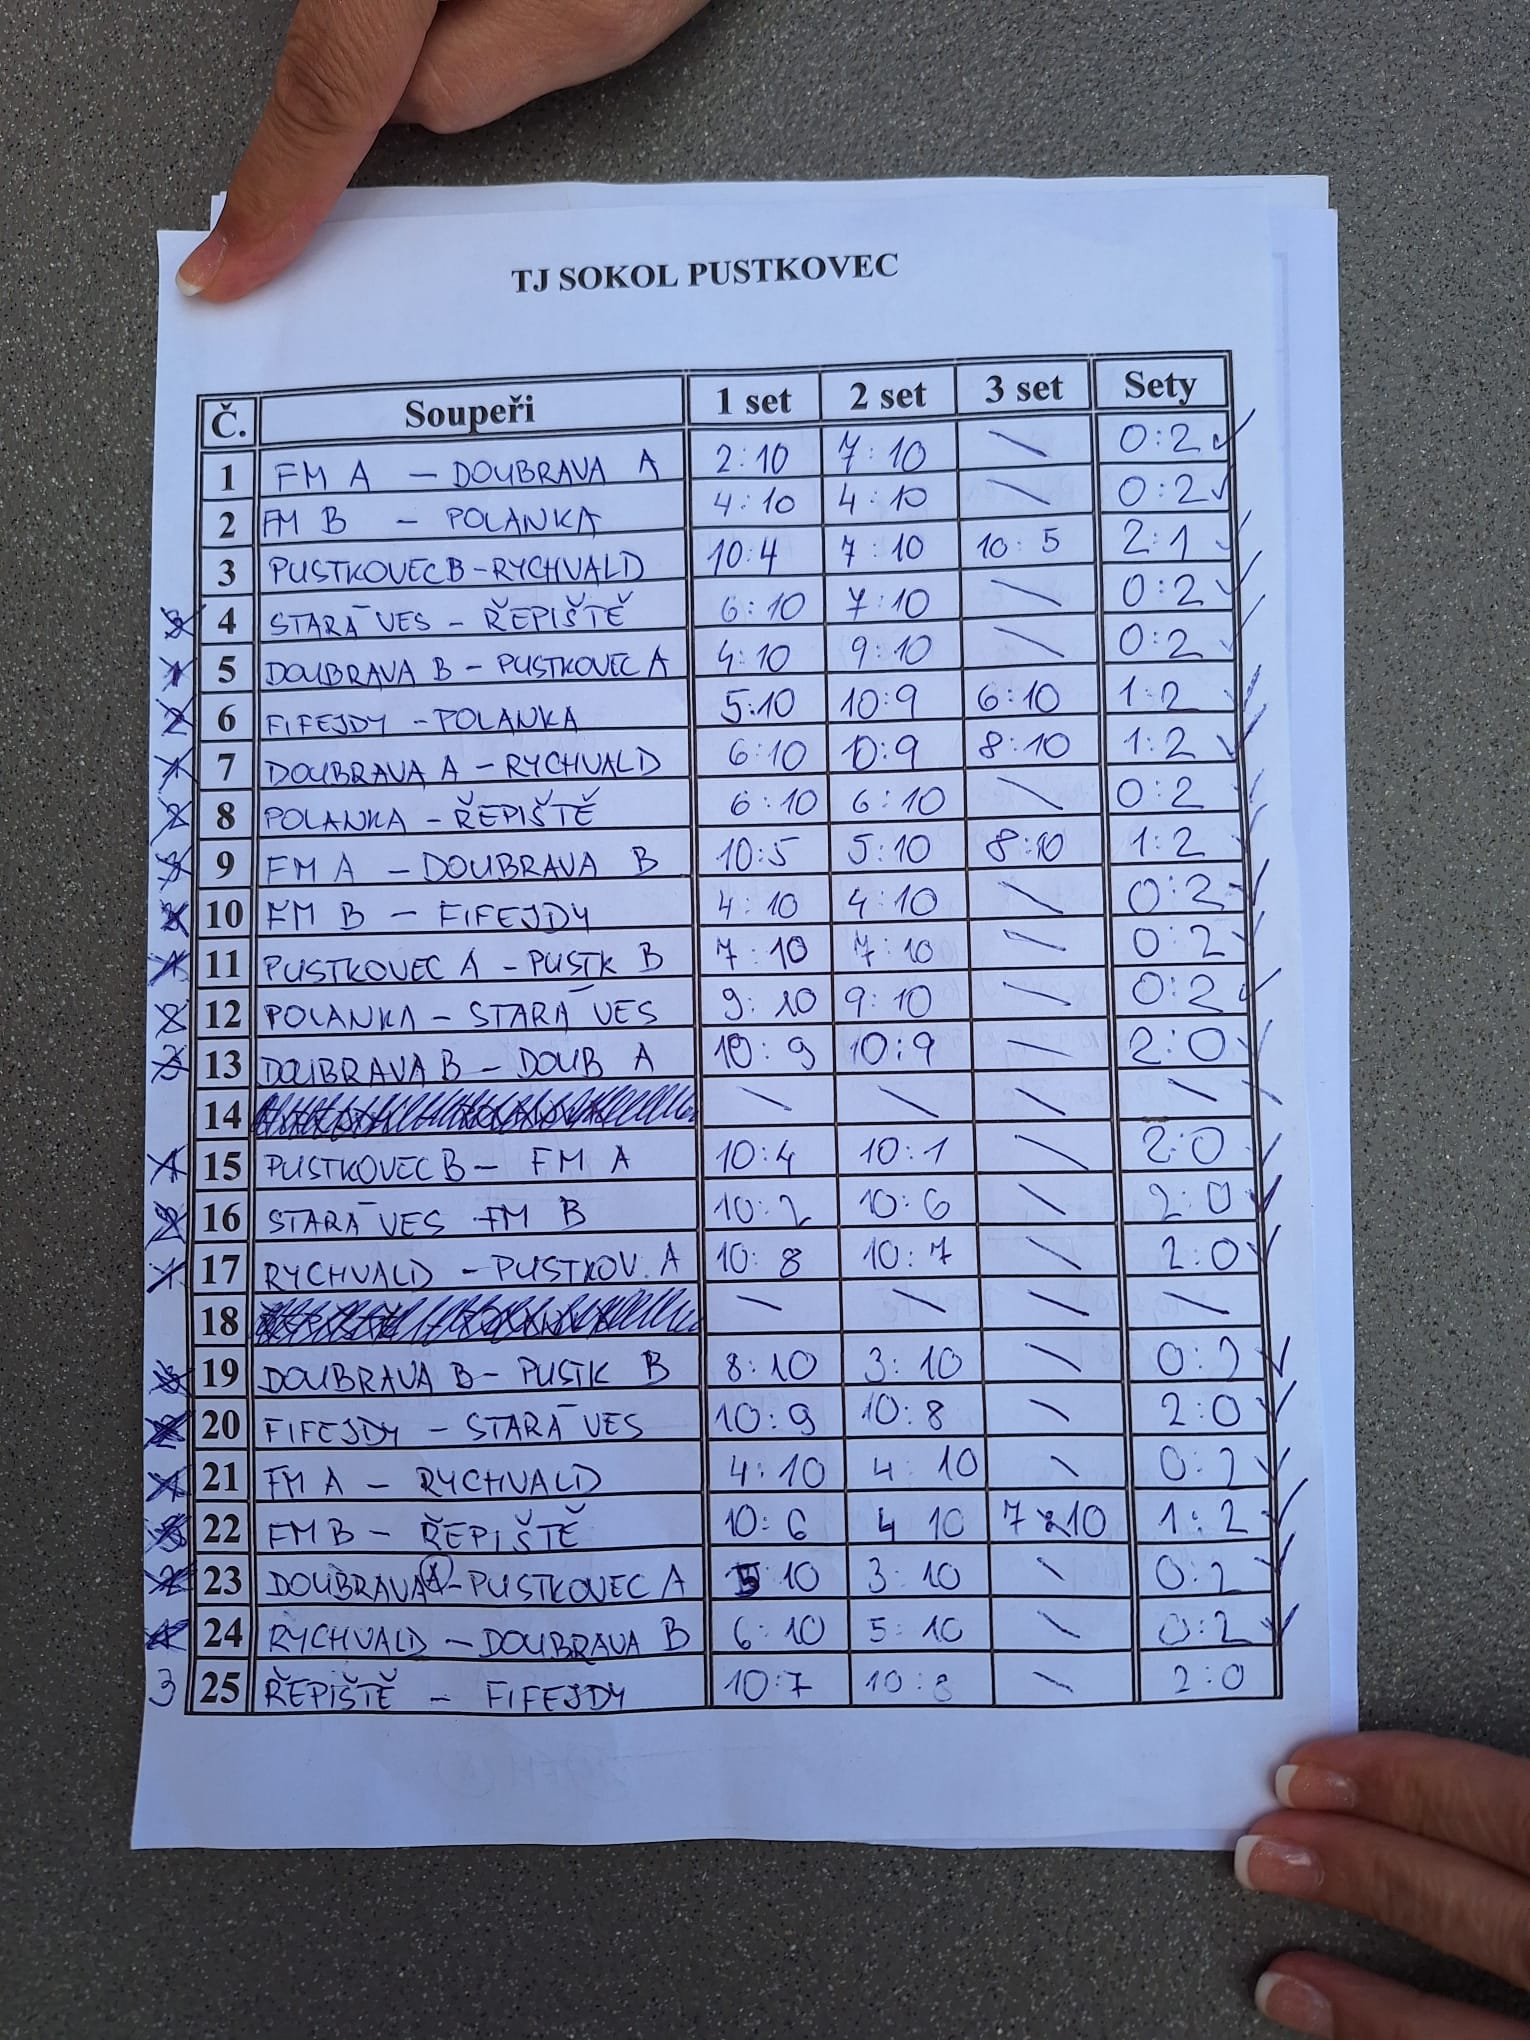 TJ SOKOL PUSTKOVEC
Č. Soupeři 1 set 2 set 3 set Sety
1 FM A - DOUBRAVA A 2:10 7:10 \ 0:2 ✓
2 FM B - POLANKA 4:10 4:10 \ 0:2 ✓
3 PUSTKOVEC B - RYCHVALD 10:4 7:10 10:5 2:1 ✓
4 STARÁ VES - ŘEPIŠTĚ 6:10 7:10 \ 0:2 ✓
5 DOUBRAVA B - PUSTKOVEC A 4:10 9:10 \ 0:2 ✓
6 FIFEJDY - POLANKA 5:10 10:9 6:10 1:2 ✓
7 DOUBRAVA A - RYCHVALD 6:10 10:9 8:10 1:2 ✓
8 POLANKA - ŘEPIŠTĚ 6:10 6:10 \ 0:2 ✓
9 FM A - DOUBRAVA B 10:5 5:10 8:10 1:2 ✓
10 FM B - FIFEJDY 4:10 4:10 \ 0:2 ✓
11 PUSTKOVEC A - PUSTK B 7:10 7:10 \ 0:2 ✓
12 POLANKA - STARÁ VES 9:10 9:10 \ 0:2 ✓
13 DOUBRAVA B - DOUB A 10:9 10:9 \ 2:0 ✓
14 \ \ \ \
15 PUSTKOVEC B - FM A 10:4 10:1 \ 2:0 ✓
16 STARÁ VES - FM B 10:2 10:6 \ 2:0 ✓
17 RYCHVALD - PUSTKOV. A 10:8 10:7 \ 2:0 ✓
18 \ \ \ \
19 DOUBRAVA B - PUSTK B 8:10 3:10 \ 0:2 ✓
20 FIFEJDY - STARÁ VES 10:9 10:8 \ 2:0 ✓
21 FM A - RYCHVALD 4:10 4:10 \ 0:2 ✓
22 FM B - ŘEPIŠTĚ 10:6 4 10 7:10 1:2 ✓
23 DOUBRAVA A - PUSTKOVEC A 5 10 3:10 \ 0:2 ✓
24 RYCHVALD - DOUBRAVA B 6:10 5:10 \ 0:2 ✓
3 25 ŘEPIŠTĚ - FIFEJDY 10:7 10:8 \ 2:0